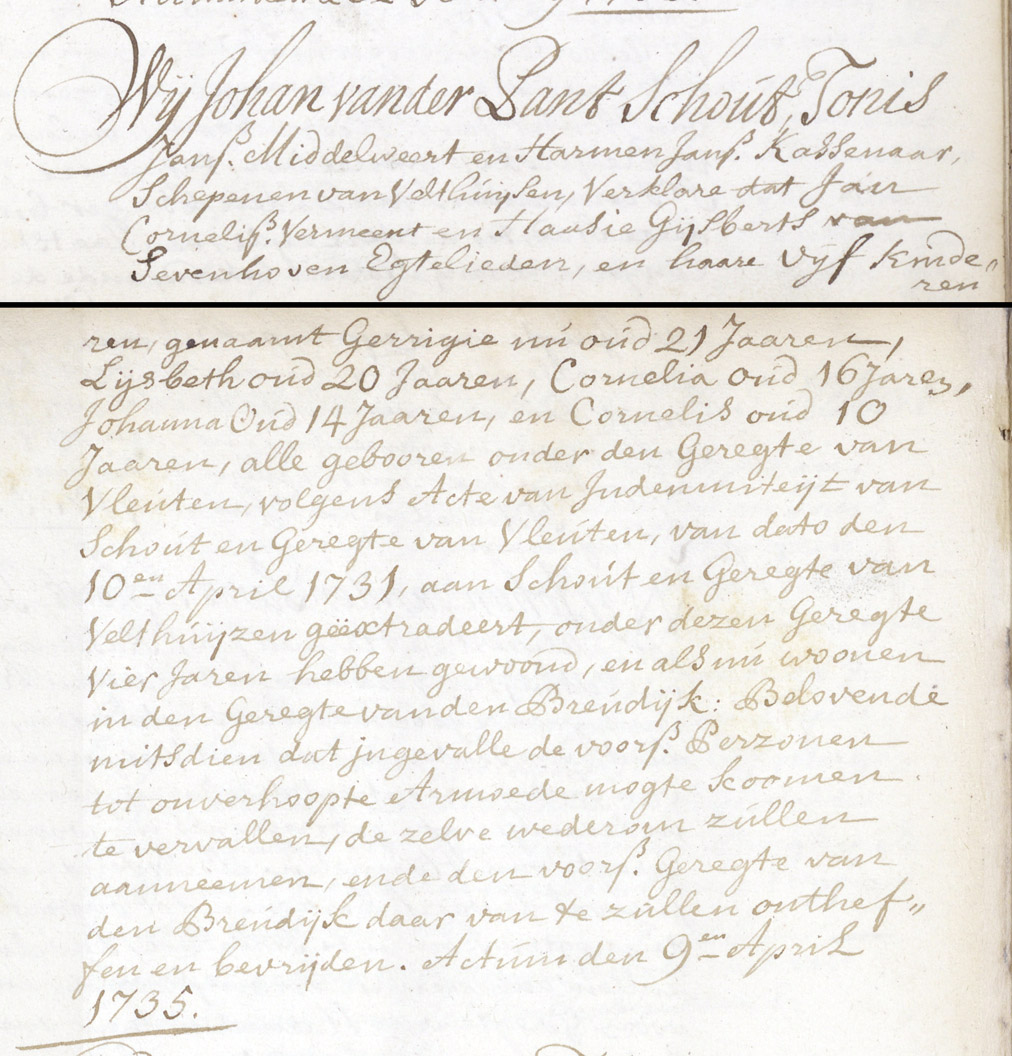 Wij Johan vander Pant Schout, Tonis
Jansz. Middelweert en Harmen Jansz. Kassenaar,
Schepenen van Velthuijsen, Verklare dat Jan
Cornelisz. Vermeent en Haasie Gijsberts van
Sevenhoven Egtelieden, en haare Vyf Kinde„
ren
ren, genaamt Gerrigie nu oud 21 Jaaren,
Lijsbeth oud 20 Jaaren, Cornelia oud 16 Jaren,
Johanna Oud 14 Jaaren, en Cornelis oud 10
Jaaren, alle gebooren onder den Geregte van
Vleuten, volgens Acte van Indemniteijt van
Schout en Geregte van Vleuten, van dato den
10en April 1731, aan Schout en Geregte van
Velthuijzen gëextradeert, onder dezen Geregte
Vier Jaren hebben gewoond, en als nu woonen
in den Geregte vanden Breudijk: Belovende
mitsdien dat jngevalle de voorsz. Perzonen
tot onverhoopte Armoede mogte koomen
te vervallen, de zelve wederom zullen
aanneemen, ende den voorsz. Geregte van
den Breudijk daar van te zullen onthef„
fen en bevrijden. Actum den 9en April
1735.